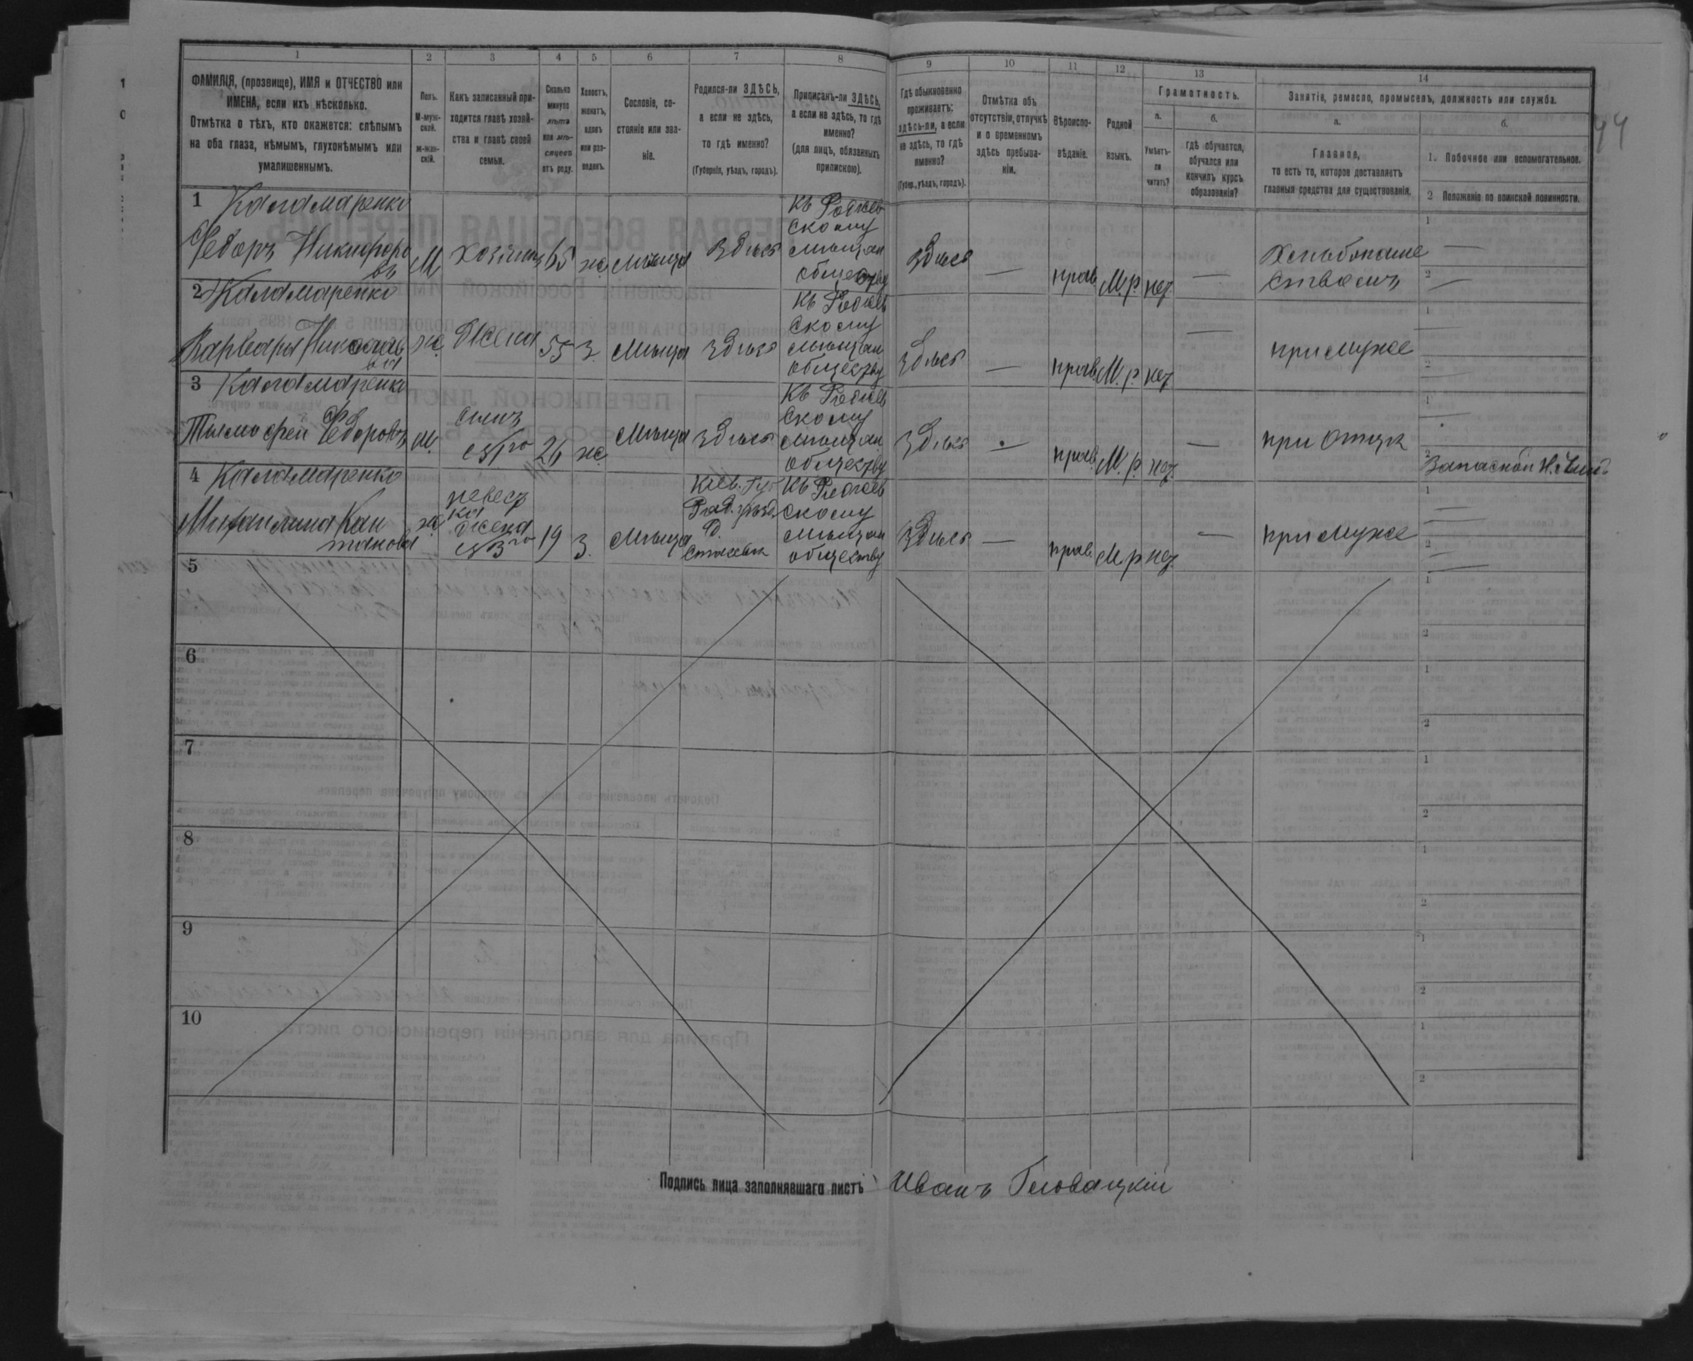 1 2 3 4 5 6 7 8 9 10 11 12 13 14
ФАМИЛІЯ, (прозвище), ИМЯ и ОТЧЕСТВО или
ИМЕНА, если ихъ нѣсколько.
Отмѣтка о тѣхъ, кто окажется: слѣпымъ
на оба глаза, нѣмымъ, глухонѣмымъ или
умалишеннымъ.
Полъ.
М-муж-
ской.
Ж-жен-
скій.
Какъ записанный при-
ходится главѣ хозяй-
ства и главѣ своей
семьи.
Сколько
минуло
лѣтъ
или мѣ-
сяцевъ
отъ роду.
Холостъ,
женатъ,
вдовъ
или раз-
веденъ.
Сословіе, со-
стояніе или зва-
ніе.
Родился-ли ЗДѢСЬ,
а если не здѣсь,
то гдѣ именно?
(Губернія, уѣздъ, городъ).
Приписанъ-ли ЗДѢСЬ,
а если не здѣсь, то гдѣ
именно?
(для лицъ, обязанныхъ
припискою).
Гдѣ обыкновенно
проживаетъ:
здѣсь-ли, а если
не здѣсь, то гдѣ
именно?
(Губер., уѣздъ, городъ).
Отмѣтка объ
отсутствіи, отлучкѣ
и о временномъ
здѣсь пребыва-
ніи.
Вѣроиспо-
вѣданіе.
Родной
языкъ.
Грамотность.
а.
Умѣетъ-
ли
читать?
б.
гдѣ обучается,
обучался или
кончилъ курсъ
образованія?
Занятіе, ремесло, промыселъ, должность или служба.
а.
Главное,
то есть то, которое доставляетъ
главныя средства для существованія.
б.
1. Побочное или вспомогательное.
2 Положеніе по воинской повинности.
44
1 Каламаренко
Федоръ Никифоро
въ
М
хозяинъ
65
ж.
мѣща
Здѣсь
Къ Радомы
скому
мѣщан
обществу
Здѣсь
—
прав
М.р.
нет
—
Хлебопаше
ствомъ
1 —
2 —
2 Каламаренко
Варвара Николае
ва
ж.
Жена
55
З
Мѣща
Здѣсь
скому
мѣщан
обществу
Здѣсь
—
прав
М.р.
нет
—
при муже
3 Каламаренко
Тимофей Федоровъ
М.
сынъ
26
ж.
Мѣща
Здѣсь
скому
мѣщан
обществу
Здѣсь
—
прав
М.р.
нет
—
при отцѣ
Запасной
4 Каламаренко
невест
ка
жена
19
З.
Мѣща
Кіев. Губ
скому
мѣщан
обществу
Здѣсь
—
прав
М.р.
нет
—
при муже
5
6
7
8
9
10
Подпись лица заполнявшаго листъ Иванъ Головацкій